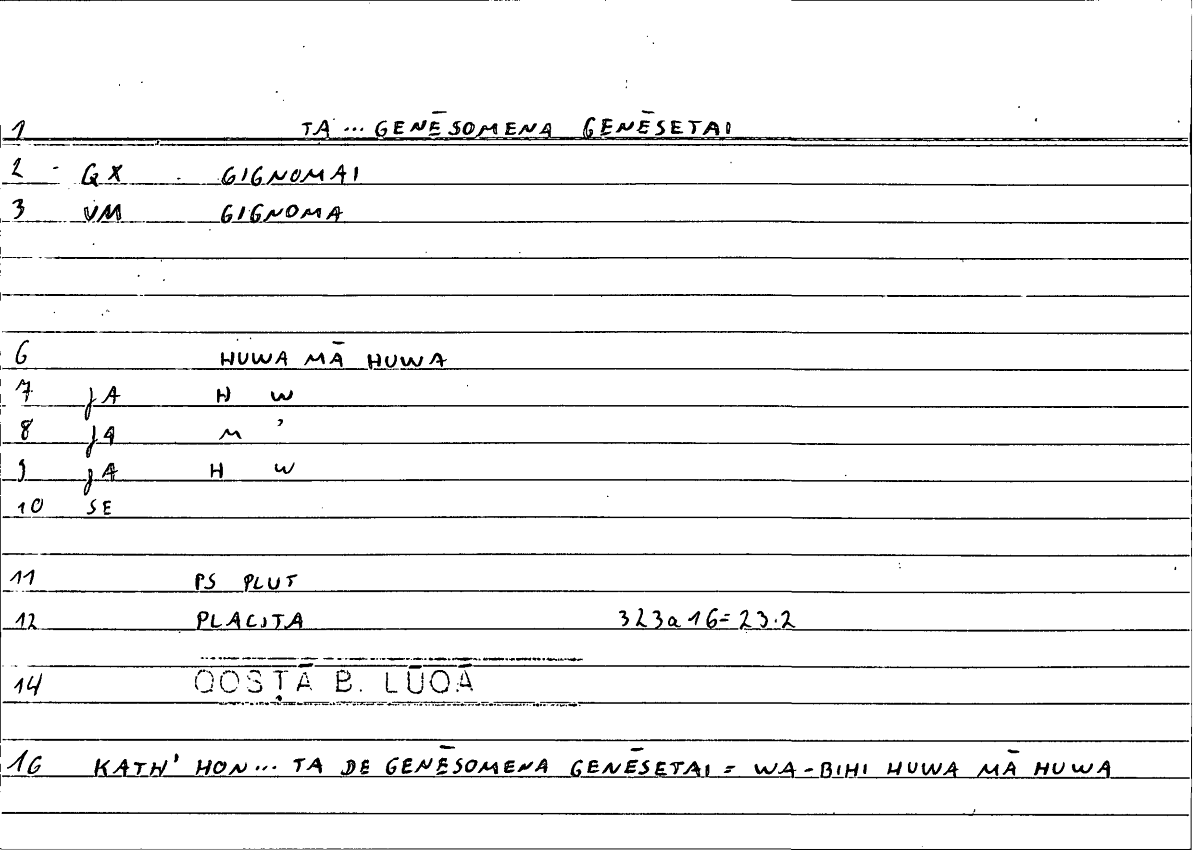 1 TA ... GENĒSOMENA GENĒSETAI
2 GX GIGNOMAI
3 VM GIGNOMA
6 HUWA MĀ HUWA
7 JA H W
8 JA M '
9 JA H W
10 SE
11 PS PLUT
12 PLACITA 323a16=23.2
14 QOSṬĀ B. LŪQĀ
16 KATH' HON... TA DE GENĒSOMENA GENĒSETAI = WA-BIHI HUWA MĀ HUWA